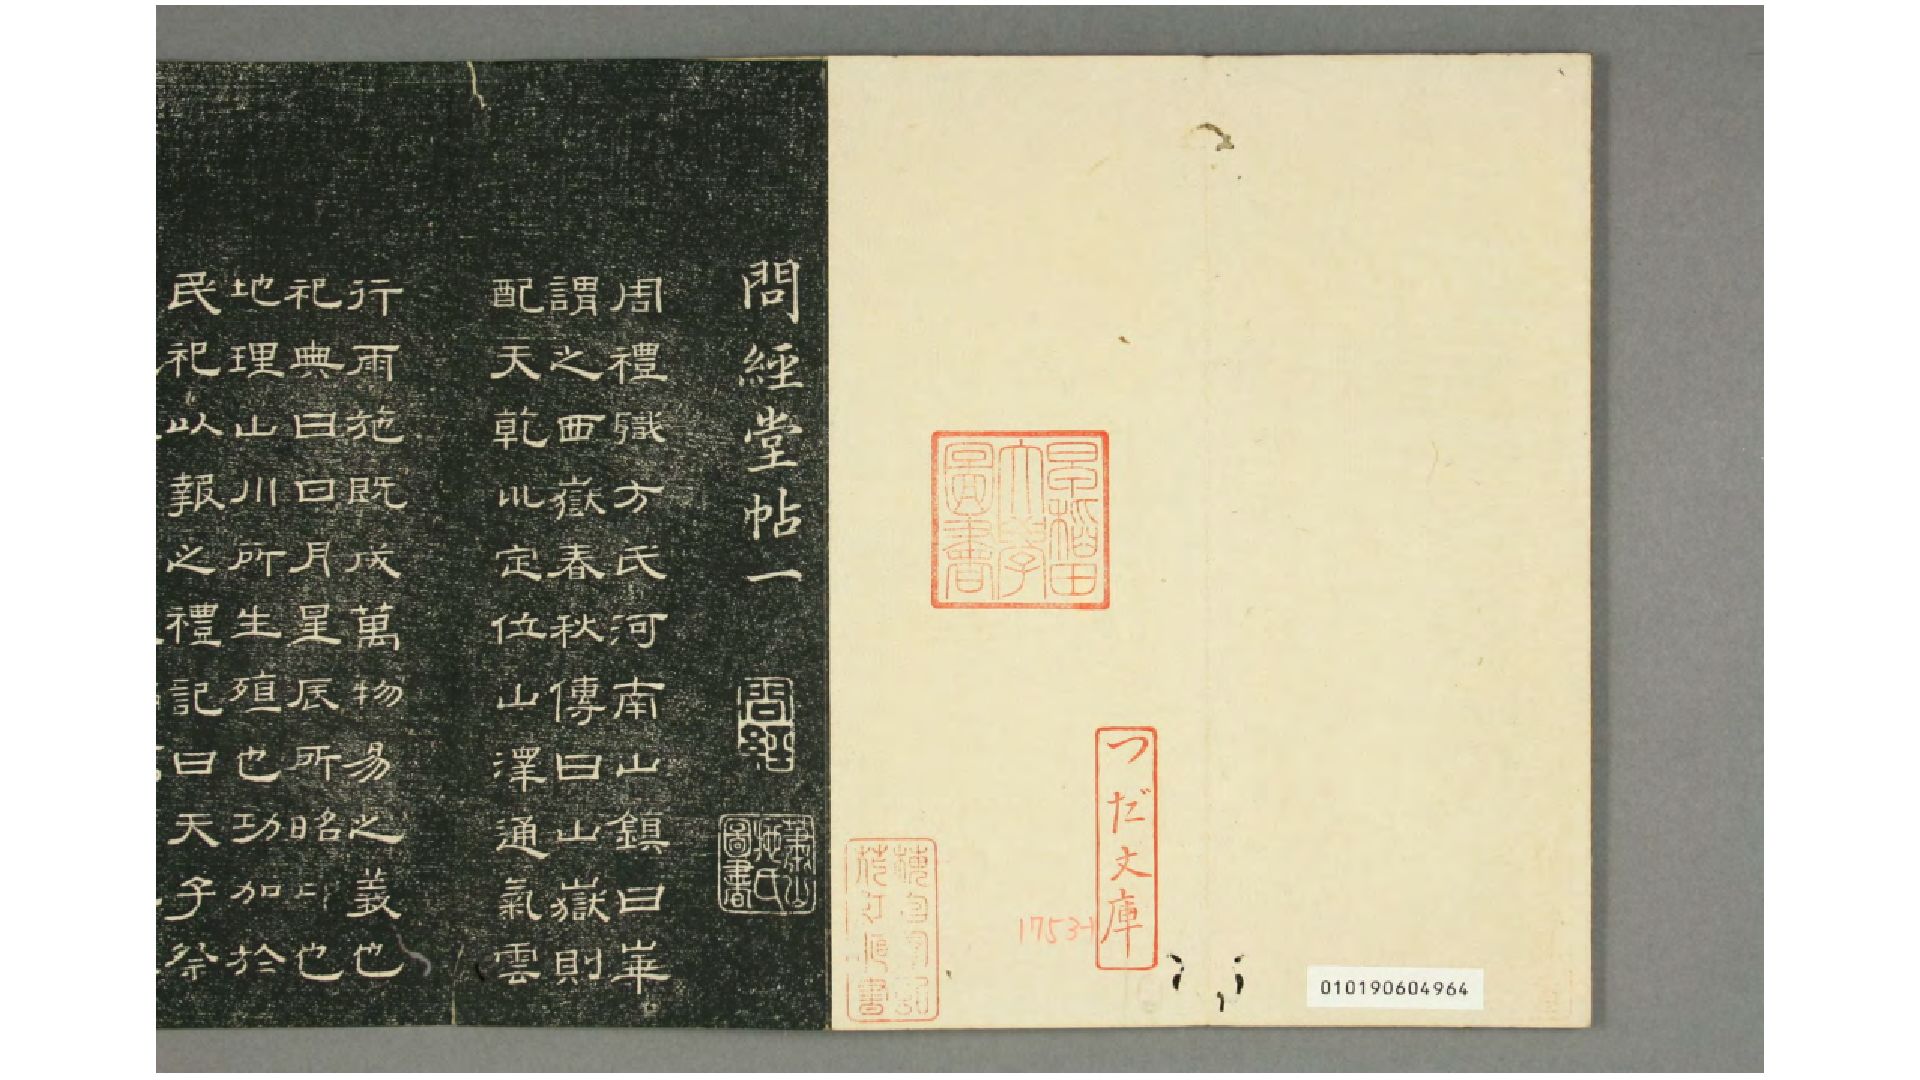 010190604964
つだ文庫
1753-1
早稻田
大學
圖書
問經堂帖一
問經
蕭山
施氏
圖書
周禮職方氏河南山鎮曰崋
謂之西嶽春秋傳曰山嶽則
配天乾巛定位山澤通氣雲
行雨施既成萬物易之義也
祀典曰日月星辰所昭卬也
地理山川所生殖也功加於
民祀以報之禮記曰天子祭